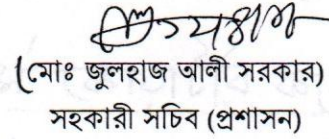 (মোঃ জুলহাজ আলী সরকার)
সহকারী সচিব (প্রশাসন)